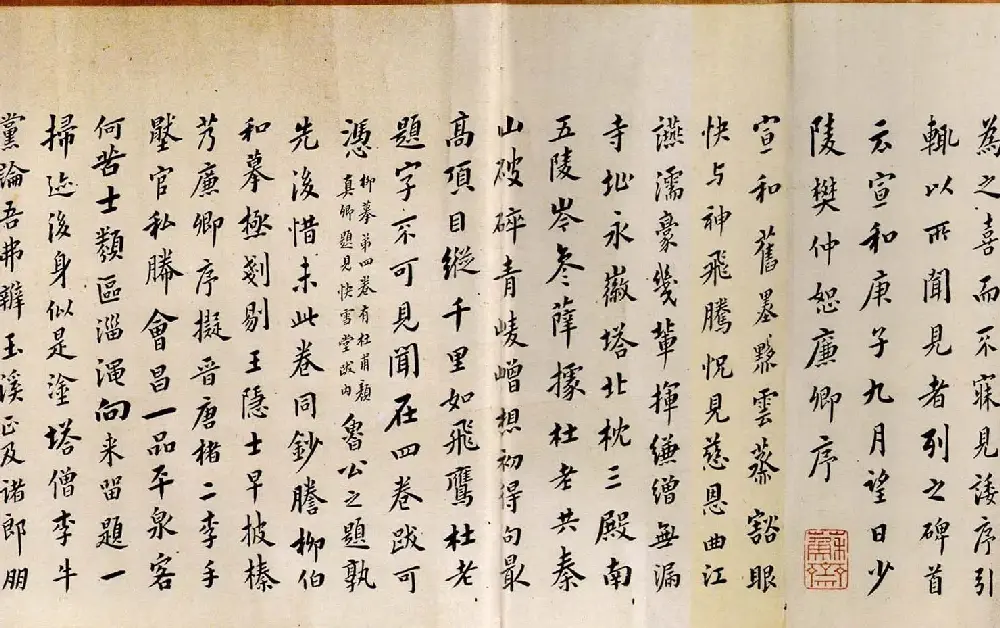 為之喜而不寐見諉序引
輒以所聞見者列之碑首
云宣和庚子九月望日少
陵樊仲恕廉卿序
宣和舊墨黟雲蒸豁眼
快与神飛騰怳見慈恩曲江
讌濡豪幾輩揮縑繒無漏
寺址永徽塔北枕三殿南
五陵岑参薛據杜老共秦
山破碎青崚嶒想初得句最
高頂目縱千里如飛鷹杜老
題字不可見聞在四卷跋可
憑柳摹弟四卷有杜甫顏真卿題見快雪堂跋內魯公之題孰
先後惜未此卷同鈔謄柳伯
和摹極剗剔王隱士早披榛
艿廉卿序擬晉唐楮二李手
壓官私勝會昌一品平泉客
何苦士類區淄澠向来留題一
掃迹後身似是塗塔僧李牛
黨論吾弗辨玉溪正及諸郎朋